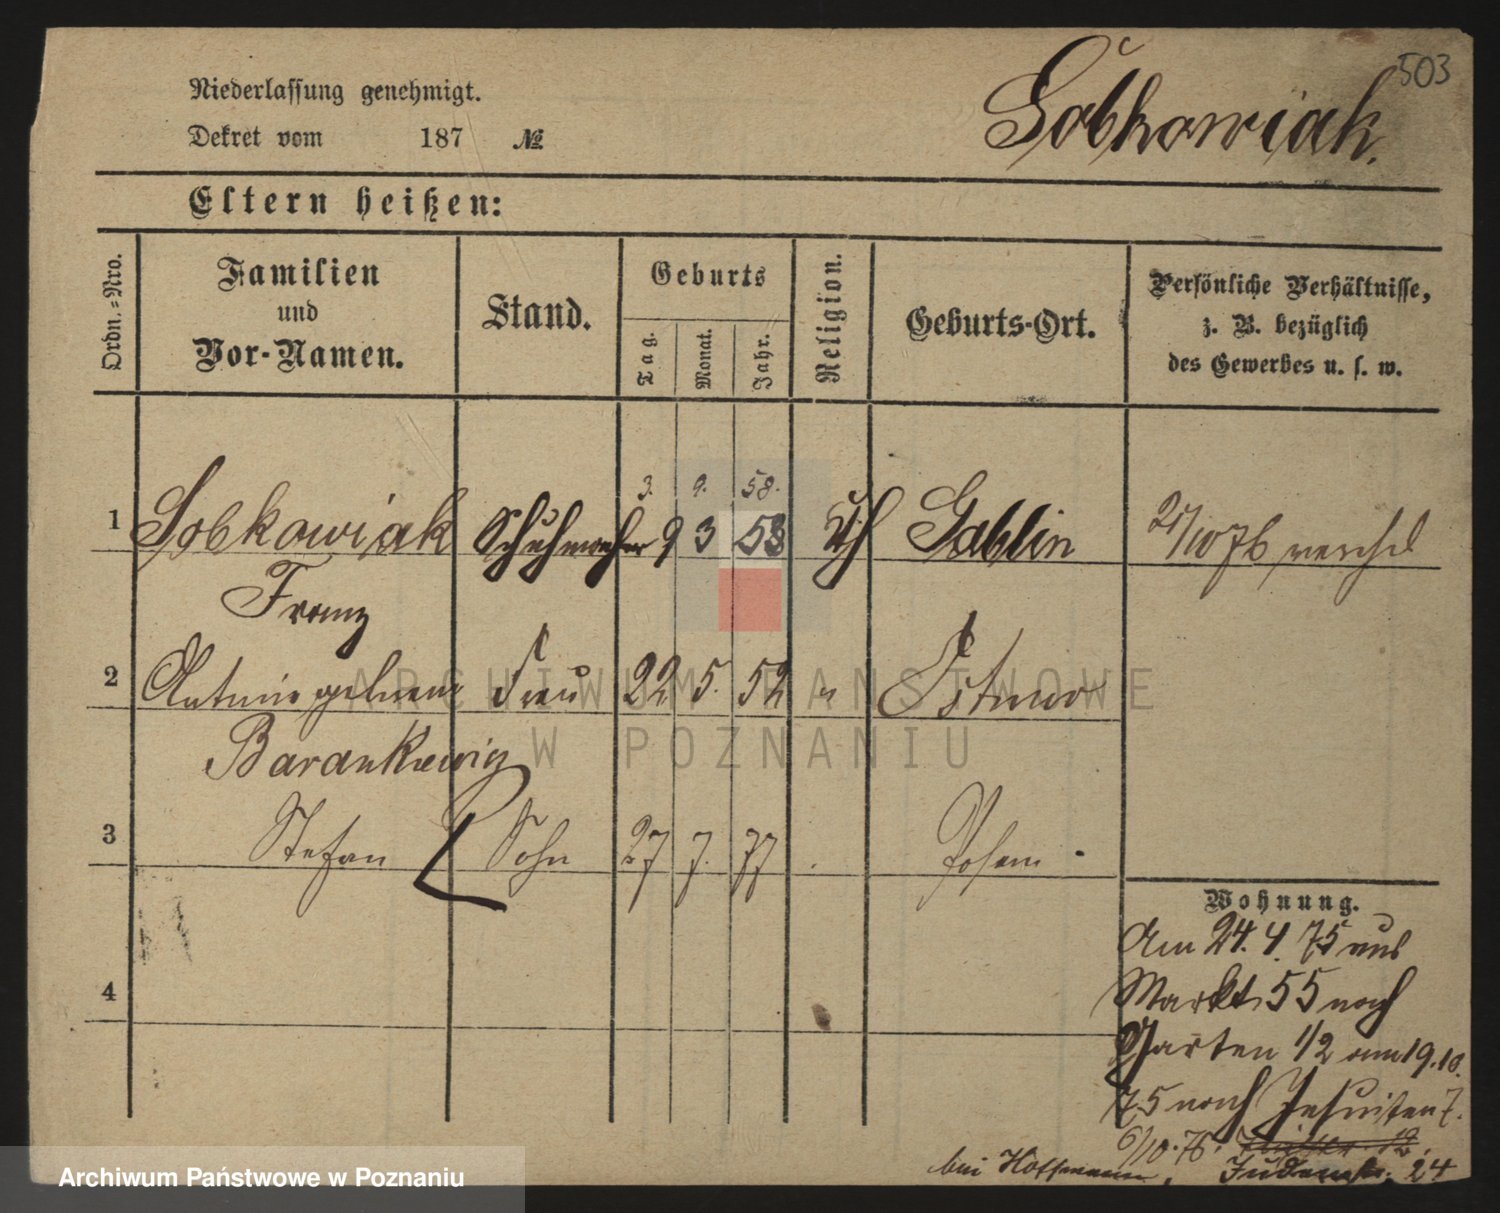 503
Niederlassung genehmigt.
Dekret vom 187 №
Sobkowiak.
Eltern heißen:
Ordn.-Nro.
Familien
und
Vor-Namen.
Stand.
Geburts
Tag.
Monat.
Jahr.
Religion.
Geburts-Ort.
Persönliche Verhältnisse,
z. B. bezüglich
des Gewerbes u. s. w.
3. 9. 58.
1 Sobkowiak Schuhmacher 9 3 53 kth Gablin 21/10 76
Franz
2 Antonie geborene Frau 22 5. 52 "
Barankiewicz
3 Stefan Sohn 27 7. 77 Posen
4
Wohnung.
Am 24. 4. 75 aus
Markt 55 nach
Garten 1/2 am 19.10.
75 nach Jesuiten 7.
6/10. 76. 12.
bei Hoffmann, Judenstr. 24
ARCHIWUM PAŃSTWOWE
W POZNANIU
Archiwum Państwowe w Poznaniu